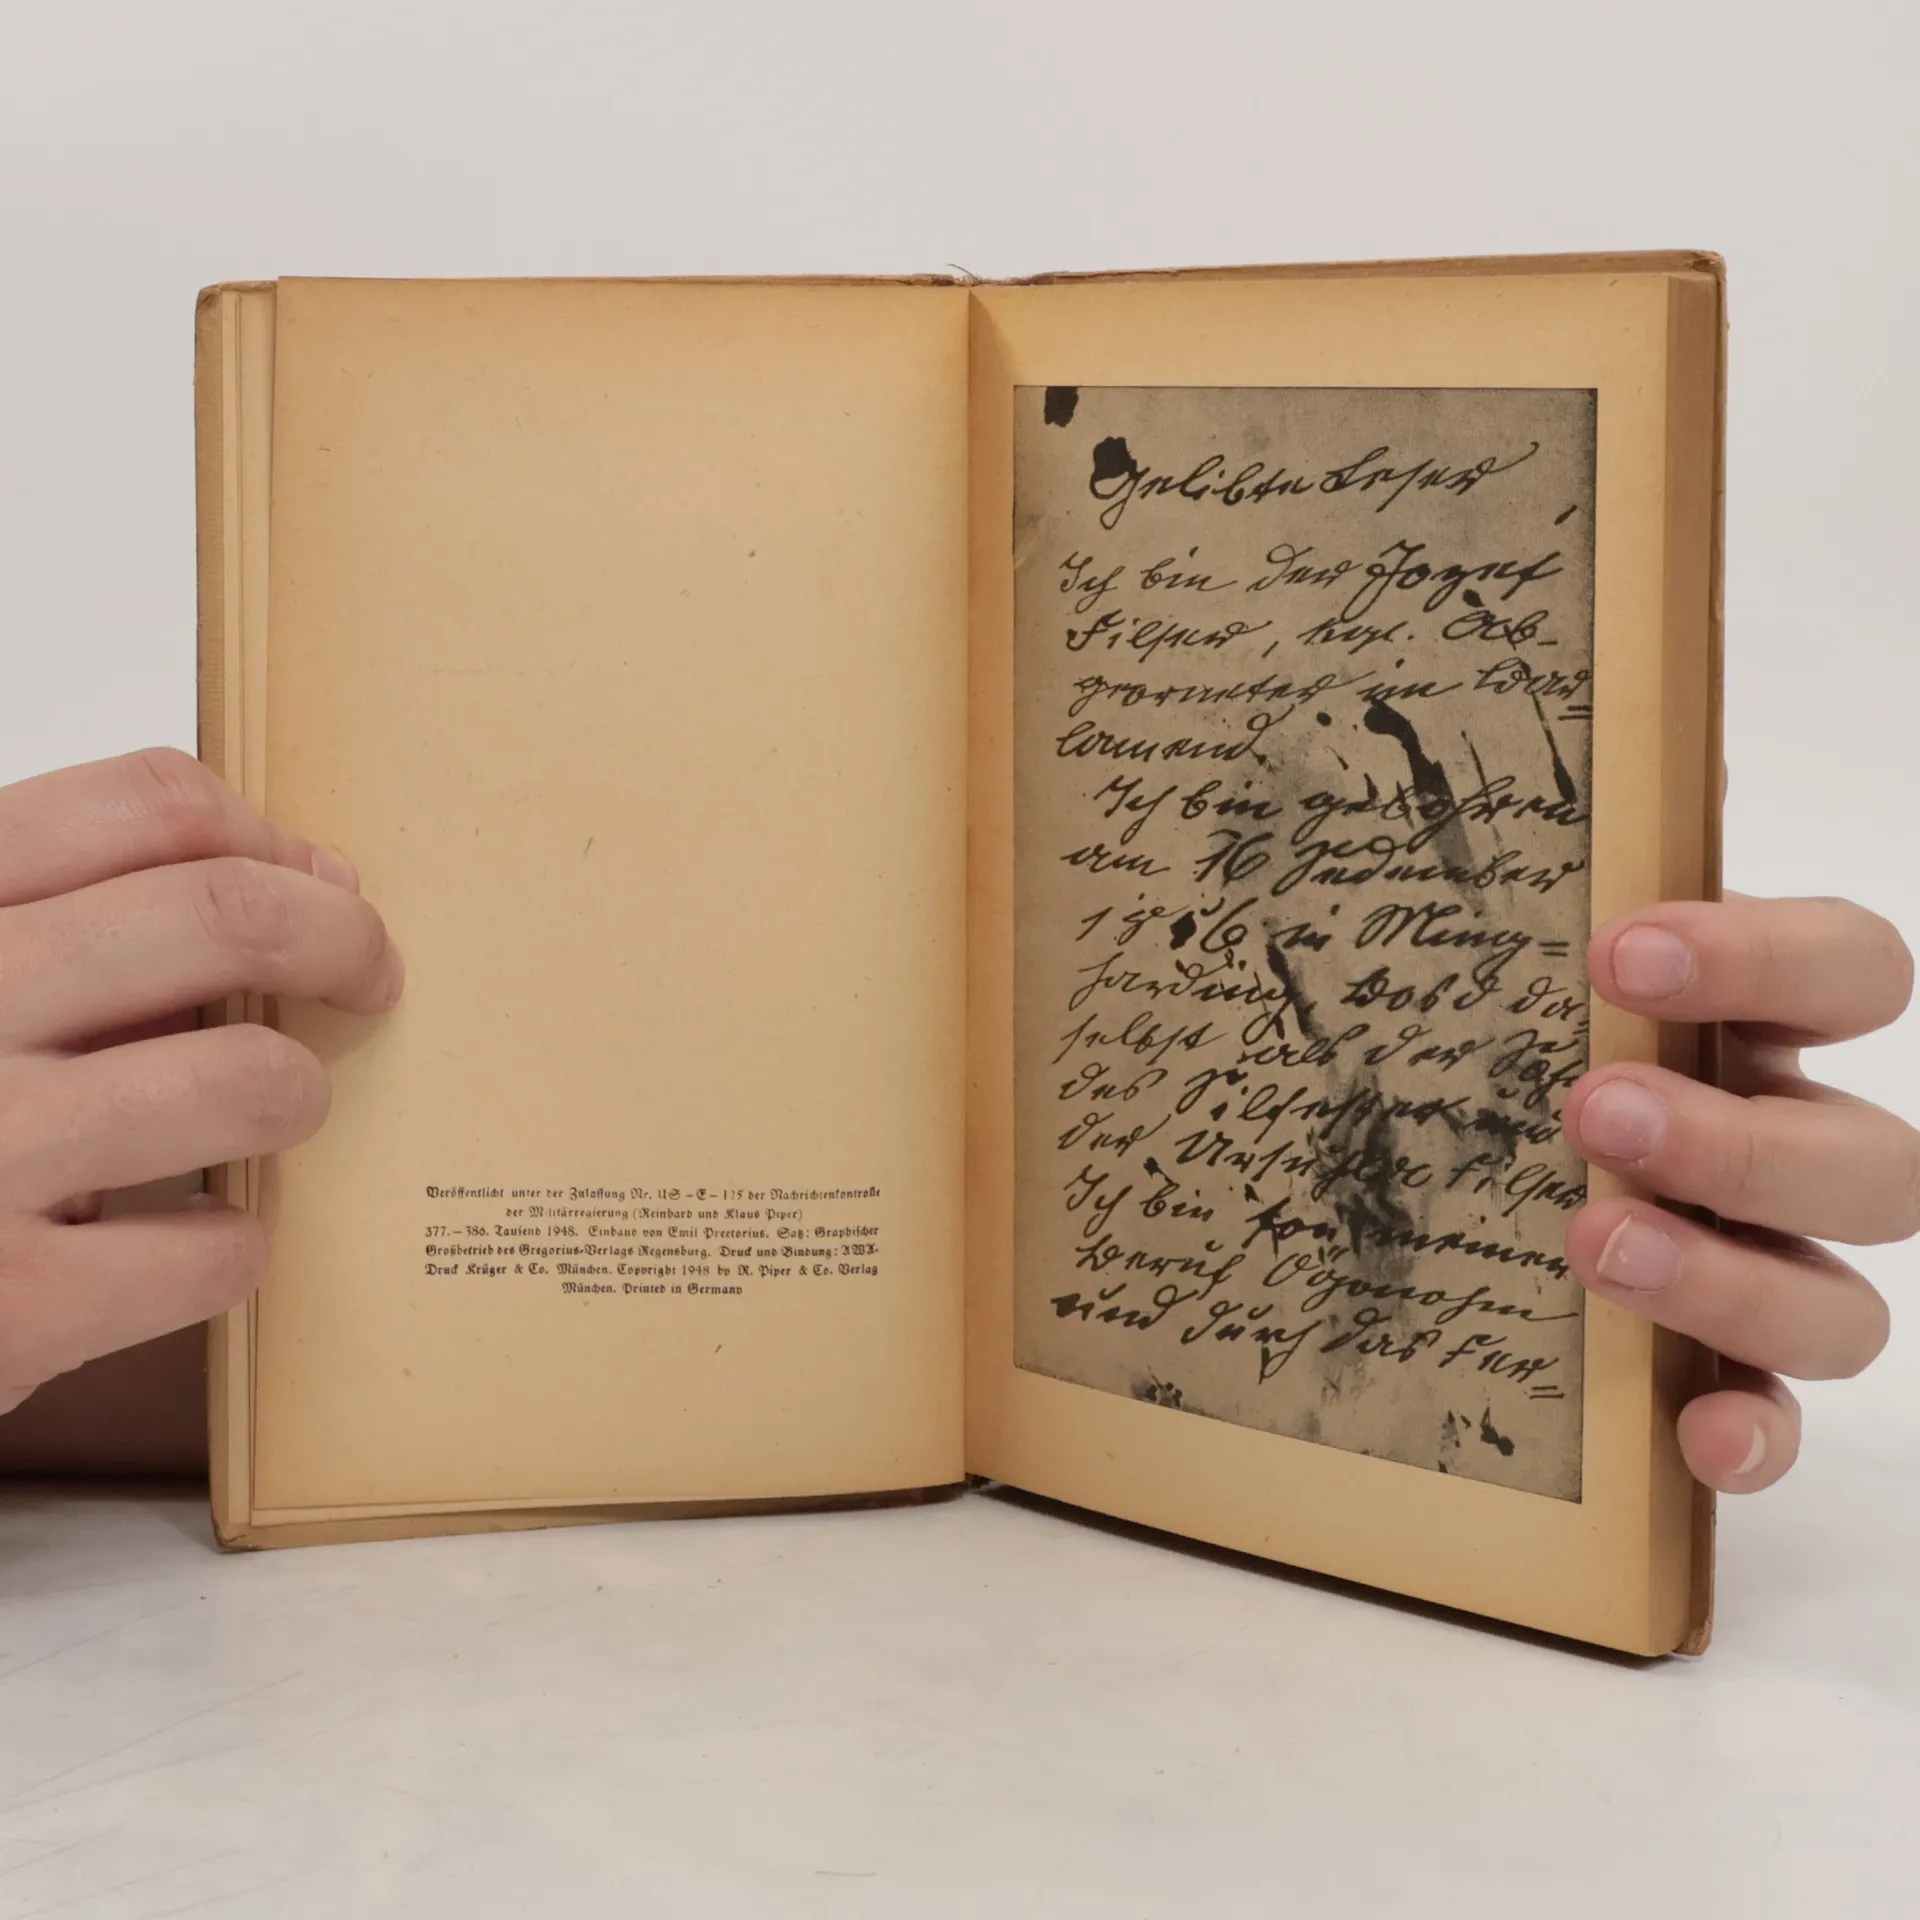 Veröffentlicht unter der Zulassung Nr. US – E – 175 der Nachrichtenkontrolle
der Militärregierung (Reinhard und Klaus Piper)
377. – 386. Tausend 1948. Einband von Emil Preetorius. Satz: Graphischer
Großbetrieb des Gregorius-Verlags Regensburg. Druck und Bindung: AWA-
Druck Krüger & Co. München. Copyright 1948 by R. Piper & Co. Verlag
München. Printed in Germany
Gelibte Leser,
Ich bin der Jozef
Filser, kgl. Ab-
georneter im Bar=
lamend.
Ich bin gebohren
am 16 Zedember
in Ming=
harding, Bosd da=
selbst als der
des Silfester und
der Filser
Ich bin fon meinen
Beruf Ögonohm
und durch das Fer=